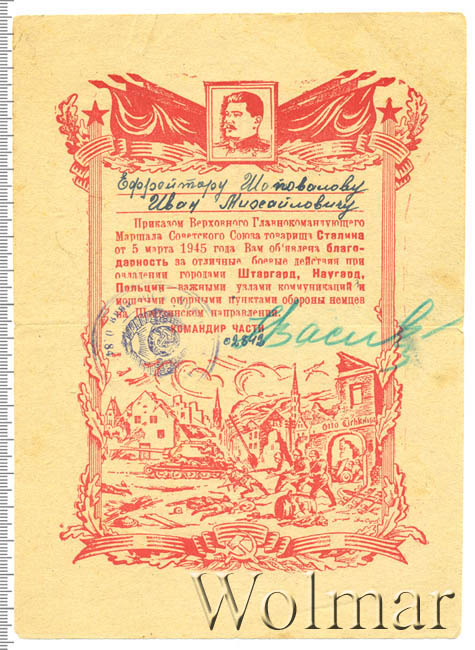 Ефрейтору Шаповалову
Иван Михайловичу
Приказом Верховного Главнокомандующего
Маршала Советского Союза товарища Сталина
от 5 марта 1945 года Вам об'явлена благо-
дарность за отличные боевые действия при
овладении городами Штаргард, Наугард,
Польцин—важными узлами коммуникаций и
мощными опорными пунктами обороны немцев
на Штеттинском направлении.
КОМАНДИР ЧАСТИ
02842
Otto
Wolmar